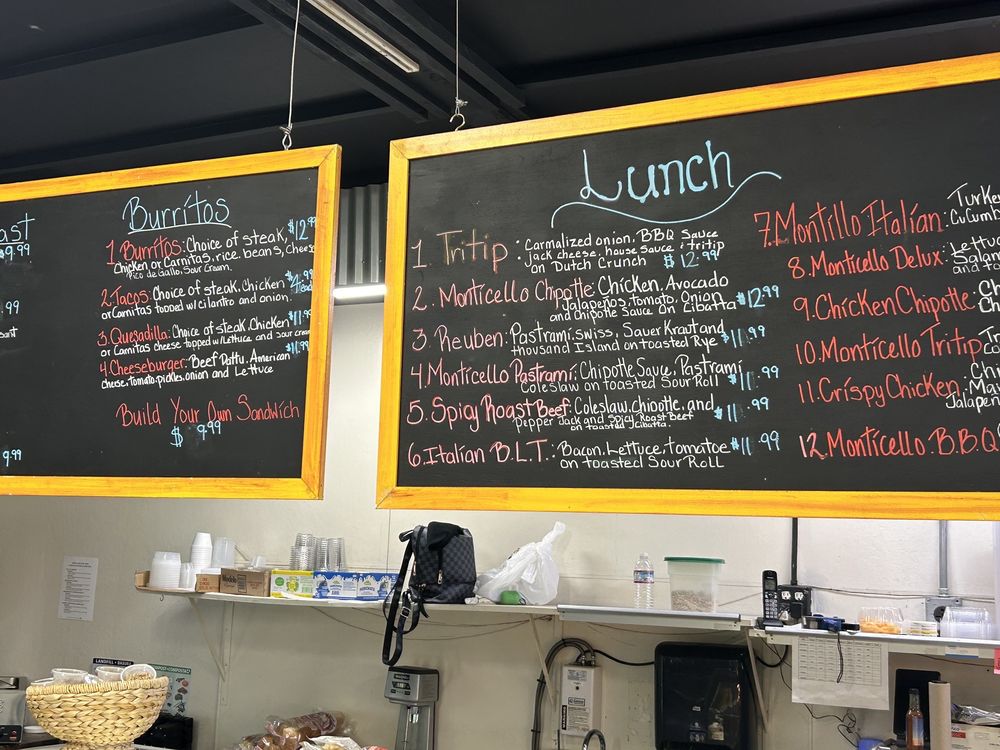 ast
$9.99
.99
9.99
Burritos
1. Burritos: Choice of steak, $12.99
Chicken or Carnitas, rice, beans, Cheese
Pico de Gallo, Sour Cream.
2. Tacos: Choice of steak, Chicken
or Carnitas topped w/cilantro and onion.
3. Quesadilla: Choice of steak, Chicken $11.99
or Carnitas cheese topped w/Lettuce and Sour cream
4. Cheeseburger: Beef Patty, American $11.99
cheese, tomato, pickles, onion and Lettuce
Build Your Own Sandwich
$ 9.99
Lunch
1 Tritip: Carmalized onion, BBQ Sauce
jack cheese, house sauce, tritip
on Dutch Crunch $12.99
2. Monticello Chpotle: Chicken, Avocado
Jalapeños, tomato, Onion $12.99
and chipotle Sauce on Cibatta
3. Reuben: Pastrami, swiss, Sauer Kraut and $11.99
thousand Island on toasted Rye
4. Monticello Pastrami: Chipotle Sauce, Pastrami
Coleslaw on toasted Sour Roll $11.99
5. Spicy Roast Beef: Coleslaw, chipotle, and
Pepper Jack and Spicy Roast Beef $11.99
on toasted Cibatta.
6. Italian B.L.T.: Bacon, Lettuce, Tomatoe $11.99
on toasted Sour Roll
7. Montillo Italian: Turkey
CuCumb
8. Monticello Delux: Lettuc
Salam
and to
9. Chicken Chipotle: Ch
Ch
10. Monticello Tritip:
11. Crispy Chicken:
Jalapen
12. Monticello B.B.Q
LANDFILL
Modelo